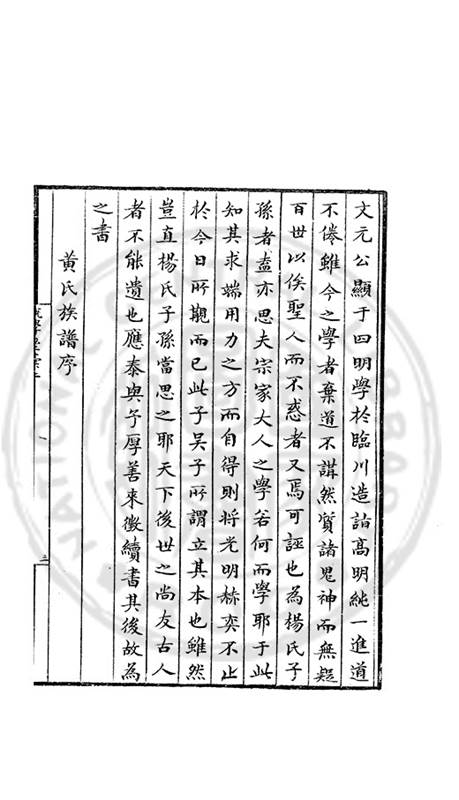 文元公顯于四明學於臨川造詣高明純一進道
不倦雖今之學者棄道不講然質諸鬼神而無疑
百世以俟聖人而不惑者又焉可誣也為楊氏子
孫者盍亦思夫宗家大人之學若何而學耶于此
知其求端用力之方而自得則将光明赫奕不止
於今日所觀而已此子吴子所謂立其本也雖然
豈直楊氏子孫當思之耶天下後世之尚友古人
者不能遺也應泰與予厚善来徴續書其後故為
之書
黄氏族譜序
三